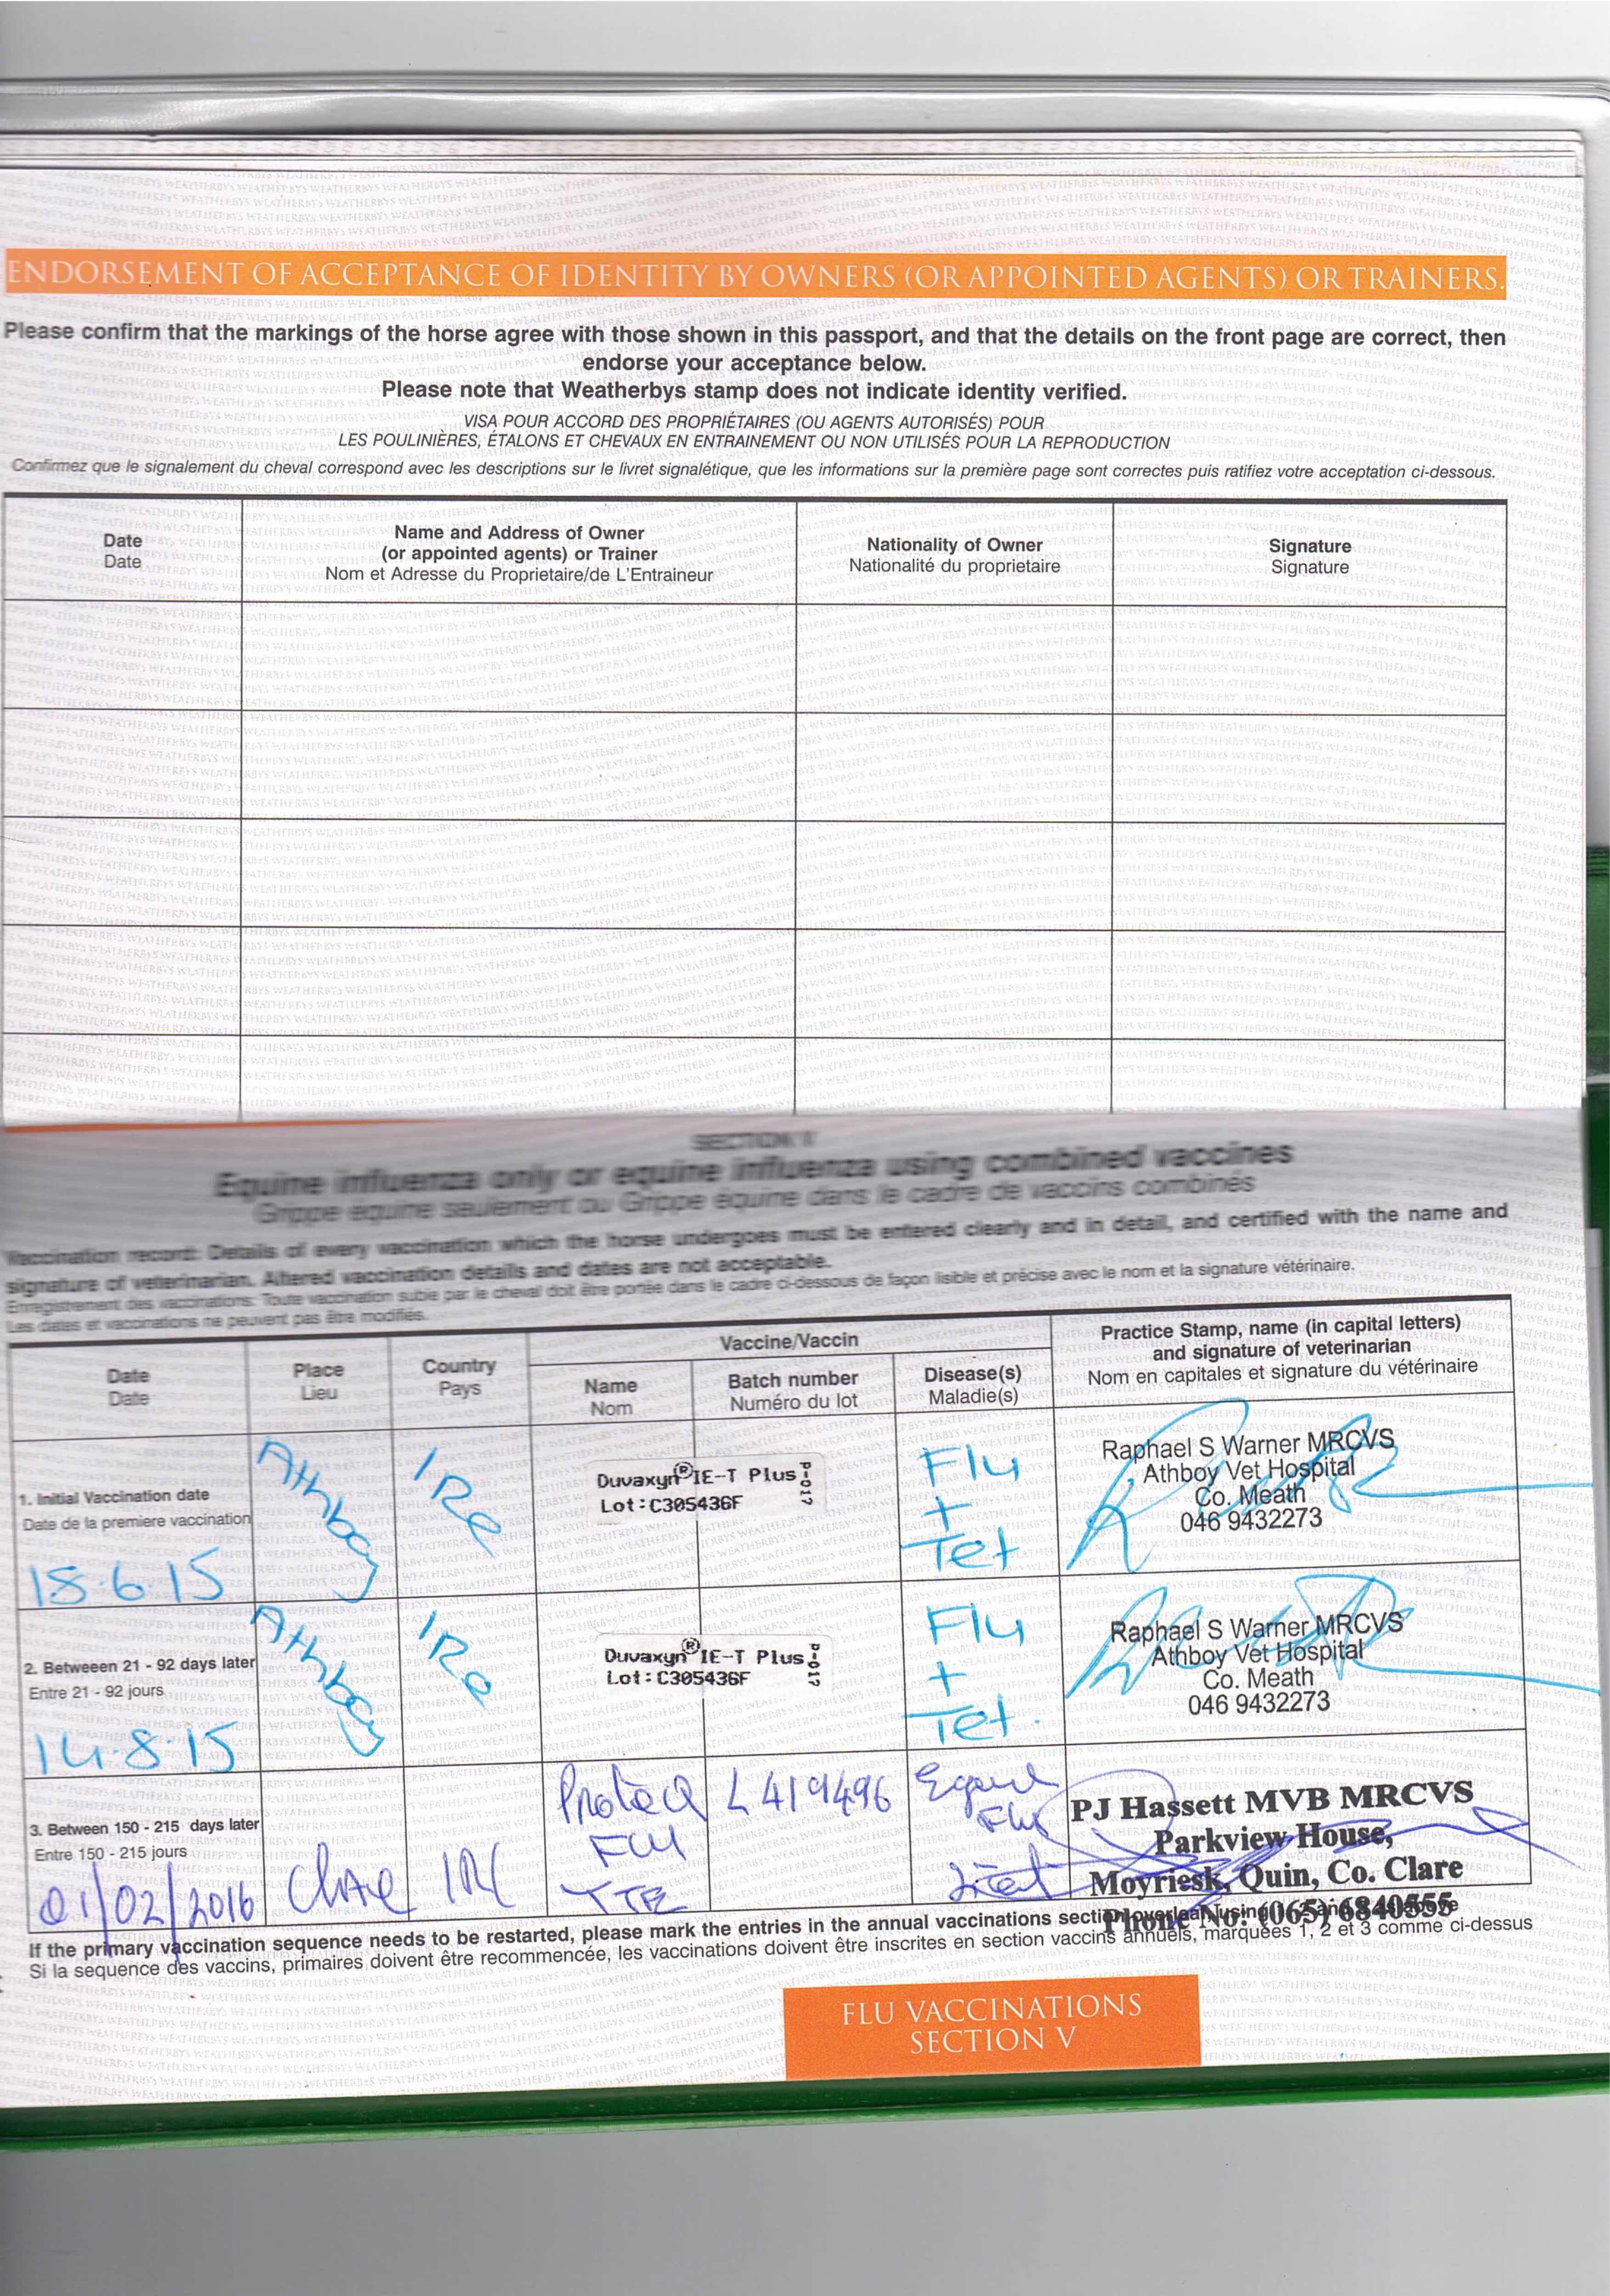 ENDORSEMENT OF ACCEPTANCE OF IDENTITY BY OWNERS (OR APPOINTED AGENTS) OR TRAINERS.
Please confirm that the markings of the horse agree with those shown in this passport, and that the details on the front page are correct, then
endorse your acceptance below.
Please note that Weatherbys stamp does not indicate identity verified.
VISA POUR ACCORD DES PROPRIÉTAIRES (OU AGENTS AUTORISÉS) POUR
LES POULINIÈRES, ÉTALONS ET CHEVAUX EN ENTRAINEMENT OU NON UTILISÉS POUR LA REPRODUCTION
Confirmez que le signalement du cheval correspond avec les descriptions sur le livret signalétique, que les informations sur la première page sont correctes puis ratifiez votre acceptation ci-dessous.
Date
Date
Name and Address of Owner
(or appointed agents) or Trainer
Nom et Adresse du Proprietaire/de L'Entraineur
Nationality of Owner
Nationalité du proprietaire
Signature
Signature
SECTION V
Equine influenza only or equine influenza using combined vaccines
Grippe equine seulement ou Grippe equine dans le cadre de vaccins combinés
Vaccination record: Details of every vaccination which the horse undergoes must be entered clearly and in detail, and certified with the name and
signature of veterinarian. Altered vaccination details and dates are not acceptable.
Enregistrement des vaccinations: Toute vaccination subie par le cheval doit être portée dans le cadre ci-dessous de façon lisible et précise avec le nom et la signature vétérinaire.
Les dates et vaccinations ne peuvent pas être modifiés.
Date
Date
Place
Lieu
Country
Pays
Vaccine/Vaccin
Name
Nom
Batch number
Numéro du lot
Disease(s)
Maladie(s)
Practice Stamp, name (in capital letters)
and signature of veterinarian
Nom en capitales et signature du vétérinaire
1. Initial Vaccination date
Date de la premiere vaccination
18.6.15
Athboy
IRe
Duvaxyn® IE-T Plus
Lot:C305436F
P-017
Flu
+
Tet
Raphael S Warner MRCVS
Athboy Vet Hospital
Co. Meath
046 9432273
2. Betweeen 21 - 92 days later
Entre 21 - 92 jours
14.8.15
Athboy
IRe
Duvaxyn® IE-T Plus
Lot:C305436F
P-017
Flu
+
Tet.
Raphael S Warner MRCVS
Athboy Vet Hospital
Co. Meath
046 9432273
3. Between 150 - 215 days later
Entre 150 - 215 jours
01/02/2016
Clare
IRL
Proteq
Flu
TE
L419496
Equine
Flu
PJ Hassett MVB MRCVS
Parkview House,
Moyriesk, Quin, Co. Clare
Phone No: (065) 6840555
If the primary vaccination sequence needs to be restarted, please mark the entries in the annual vaccinations section overleaf using
Si la sequence des vaccins, primaires doivent être recommencée, les vaccinations doivent être inscrites en section vaccins annuels, marquées 1, 2 et 3 comme ci-dessus
FLU VACCINATIONS
SECTION V